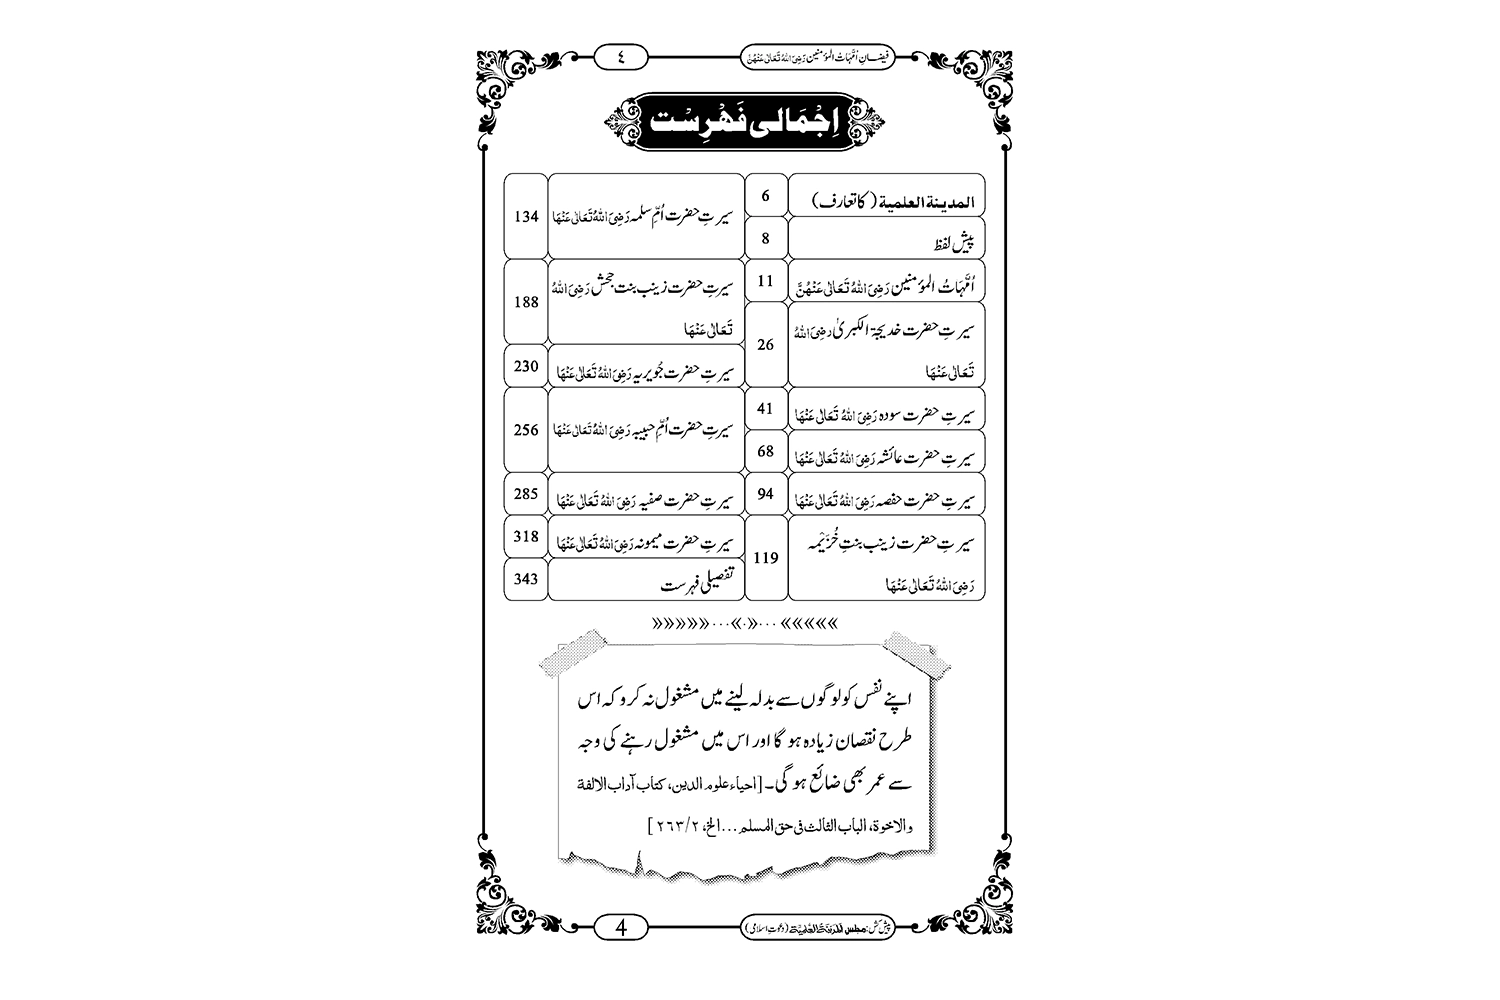 فیضانِ اُمَّہاتُ المؤمنین رَضِیَ اللہُ تَعَالٰی عَنْہُنَّ
٤
اِجْمَالی فَہْرِسْت
المدینۃ العلمیۃ (کا تعارف) 6
پیش لفظ 8
اُمَّہَاتُ المؤمنین رَضِیَ اللہُ تَعَالٰی عَنْہُنَّ 11
سیرتِ حضرت خدیجۃ الکبریٰ رَضِیَ اللہُ
تَعَالٰی عَنْہَا 26
سیرتِ حضرت سودہ رَضِیَ اللہُ تَعَالٰی عَنْہَا 41
سیرتِ حضرت عائشہ رَضِیَ اللہُ تَعَالٰی عَنْہَا 68
سیرتِ حضرت حفصہ رَضِیَ اللہُ تَعَالٰی عَنْہَا 94
سیرتِ حضرت زینب بنتِ خُزَیْمہ
رَضِیَ اللہُ تَعَالٰی عَنْہَا 119
سیرتِ حضرت اُمِّ سلمہ رَضِیَ اللہُ تَعَالٰی عَنْہَا 134
سیرتِ حضرت زینب بنت جحش رَضِیَ اللہُ
تَعَالٰی عَنْہَا 188
سیرتِ حضرت جُویریہ رَضِیَ اللہُ تَعَالٰی عَنْہَا 230
سیرتِ حضرت اُمِّ حبیبہ رَضِیَ اللہُ تَعَالٰی عَنْہَا 256
سیرتِ حضرت صفیہ رَضِیَ اللہُ تَعَالٰی عَنْہَا 285
سیرتِ حضرت میمونہ رَضِیَ اللہُ تَعَالٰی عَنْہَا 318
تفصیلی فہرست 343
اپنے نفس کو لوگوں سے بدلہ لینے میں مشغول نہ کرو کہ اس
طرح نقصان زیادہ ہو گا اور اس میں مشغول رہنے کی وجہ
سے عمر بھی ضائع ہو گی۔ [احیاء علوم الدین، کتاب آداب الالفۃ
والاخوۃ، الباب الثالث فی حق المسلم...الخ، ٢/٢٦٣]
پیش کش: مجلس المدینۃ العلمیۃ (دعوتِ اسلامی)
4